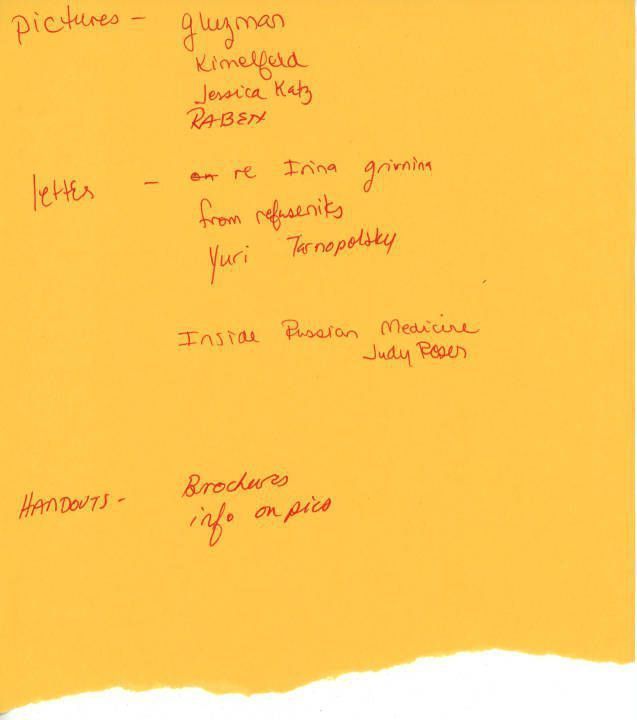 pictures - gluzman
Kimelfeld
Jessica Katz
RABEN
letter - on re Irina grivnina
from refuseniks
Yuri Tarnopolsky
Inside Russian Medicine
Judy Roser
HANDOUTS - Brochures
info on pics